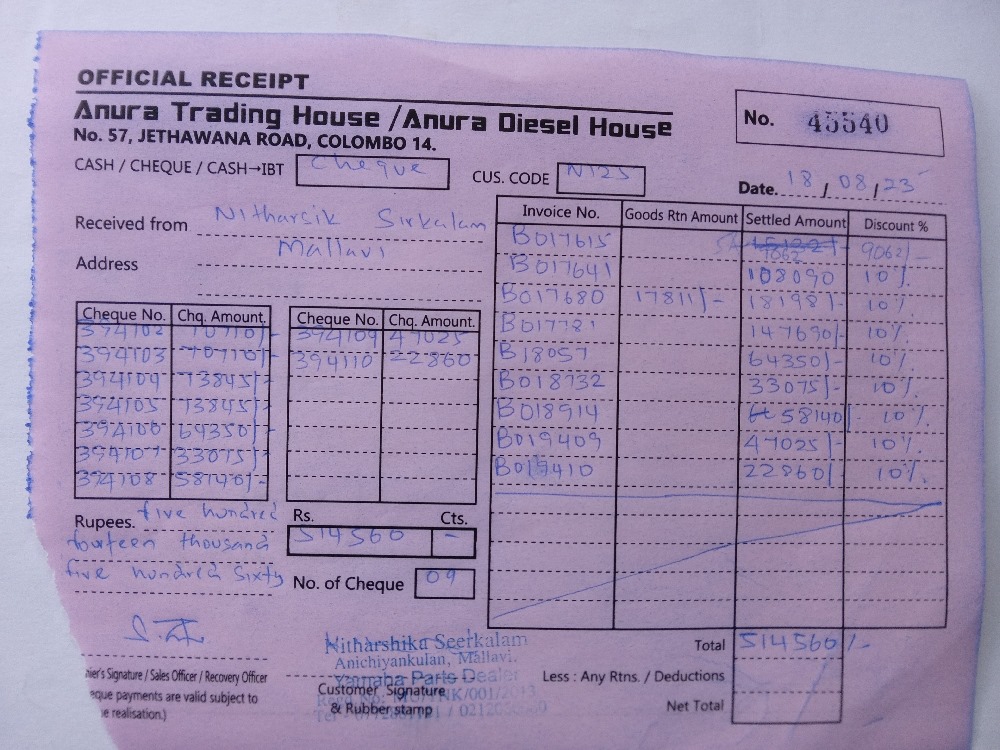 OFFICIAL RECEIPT
Anura Trading House /Anura Diesel House
No. 57, JETHAWANA ROAD, COLOMBO 14.
No. 45540
CASH / CHEQUE / CASH→IBT Cheque
CUS. CODE N125
Date. 18 / 08 / 23
Received from Nitharsik Sirkalam
Mallavi
Address
Invoice No. Goods Rtn Amount Settled Amount Discount %
B017615 9062/-
B017641 108090 10%
B017680 17811/- 181981/- 10%
B017781 147690/- 10%
B18057 64350/- 10%
B018732 33075/- 10%
B018914 58140/- 10%
B019409 47025/- 10%
B019410 22860/- 10%
Cheque No. Chq. Amount. Cheque No. Chq. Amount.
394102 70710/- 394109 47025
394103 70710/- 394110 22860
394104 73845/-
394105 73845/-
394106 64350/-
394107 33075/-
394108 58140/-
Rupees. five hundred
fourteen thousand
five hundred sixty
Rs. Cts.
514560 -
No. of Cheque 09
Total 514560/-
Less : Any Rtns. / Deductions
Net Total
Nitharshika Seerkalam
Anichiyankulan, Mallavi.
Yamaha Parts Dealer
Customer Signature
& Rubber stamp
Signature / Sales Officer / Recovery Officer
payments are valid subject to
realisation.)